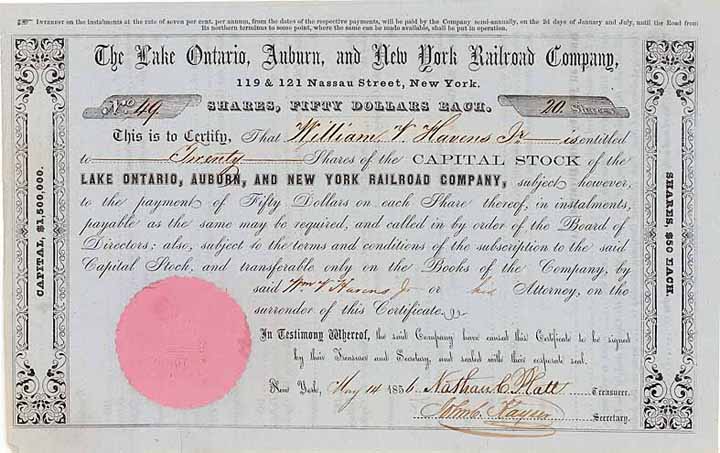 INTEREST on the instalments at the rate of seven per cent. per annum, from the dates of the respective payments, will be paid by the Company semi-annually, on the 2d days of January and July, until the Road from
its northern terminus to some point, where the same can be made available, shall be put in operation.
The Lake Ontario, Auburn, and New York Railroad Company,
119 & 121 Nassau Street, New York.
No. 49
SHARES, FIFTY DOLLARS EACH.
20 Shares
This is to Certify, That William V. Havens Jr. is entitled
to Twenty Shares of the CAPITAL STOCK of the
LAKE ONTARIO, AUBURN, AND NEW YORK RAILROAD COMPANY, subject however,
to the payment of Fifty Dollars on each Share thereof, in instalments,
payable as the same may be required, and called in by order of the Board of
Directors; also, subject to the terms and conditions of the subscription to the said
Capital Stock, and transferable only on the Books of the Company, by
said Wm V Havens Jr or his Attorney, on the
surrender of this Certificate.
In Testimony Whereof, the said Company have caused this Certificate to be signed
by their Treasurer and Secretary, and sealed with their corporate seal.
New York, May 14 1856 Nathan C. Platt Treasurer.
Secretary.
CAPITAL, $1,500,000.
SHARES, $50 EACH.